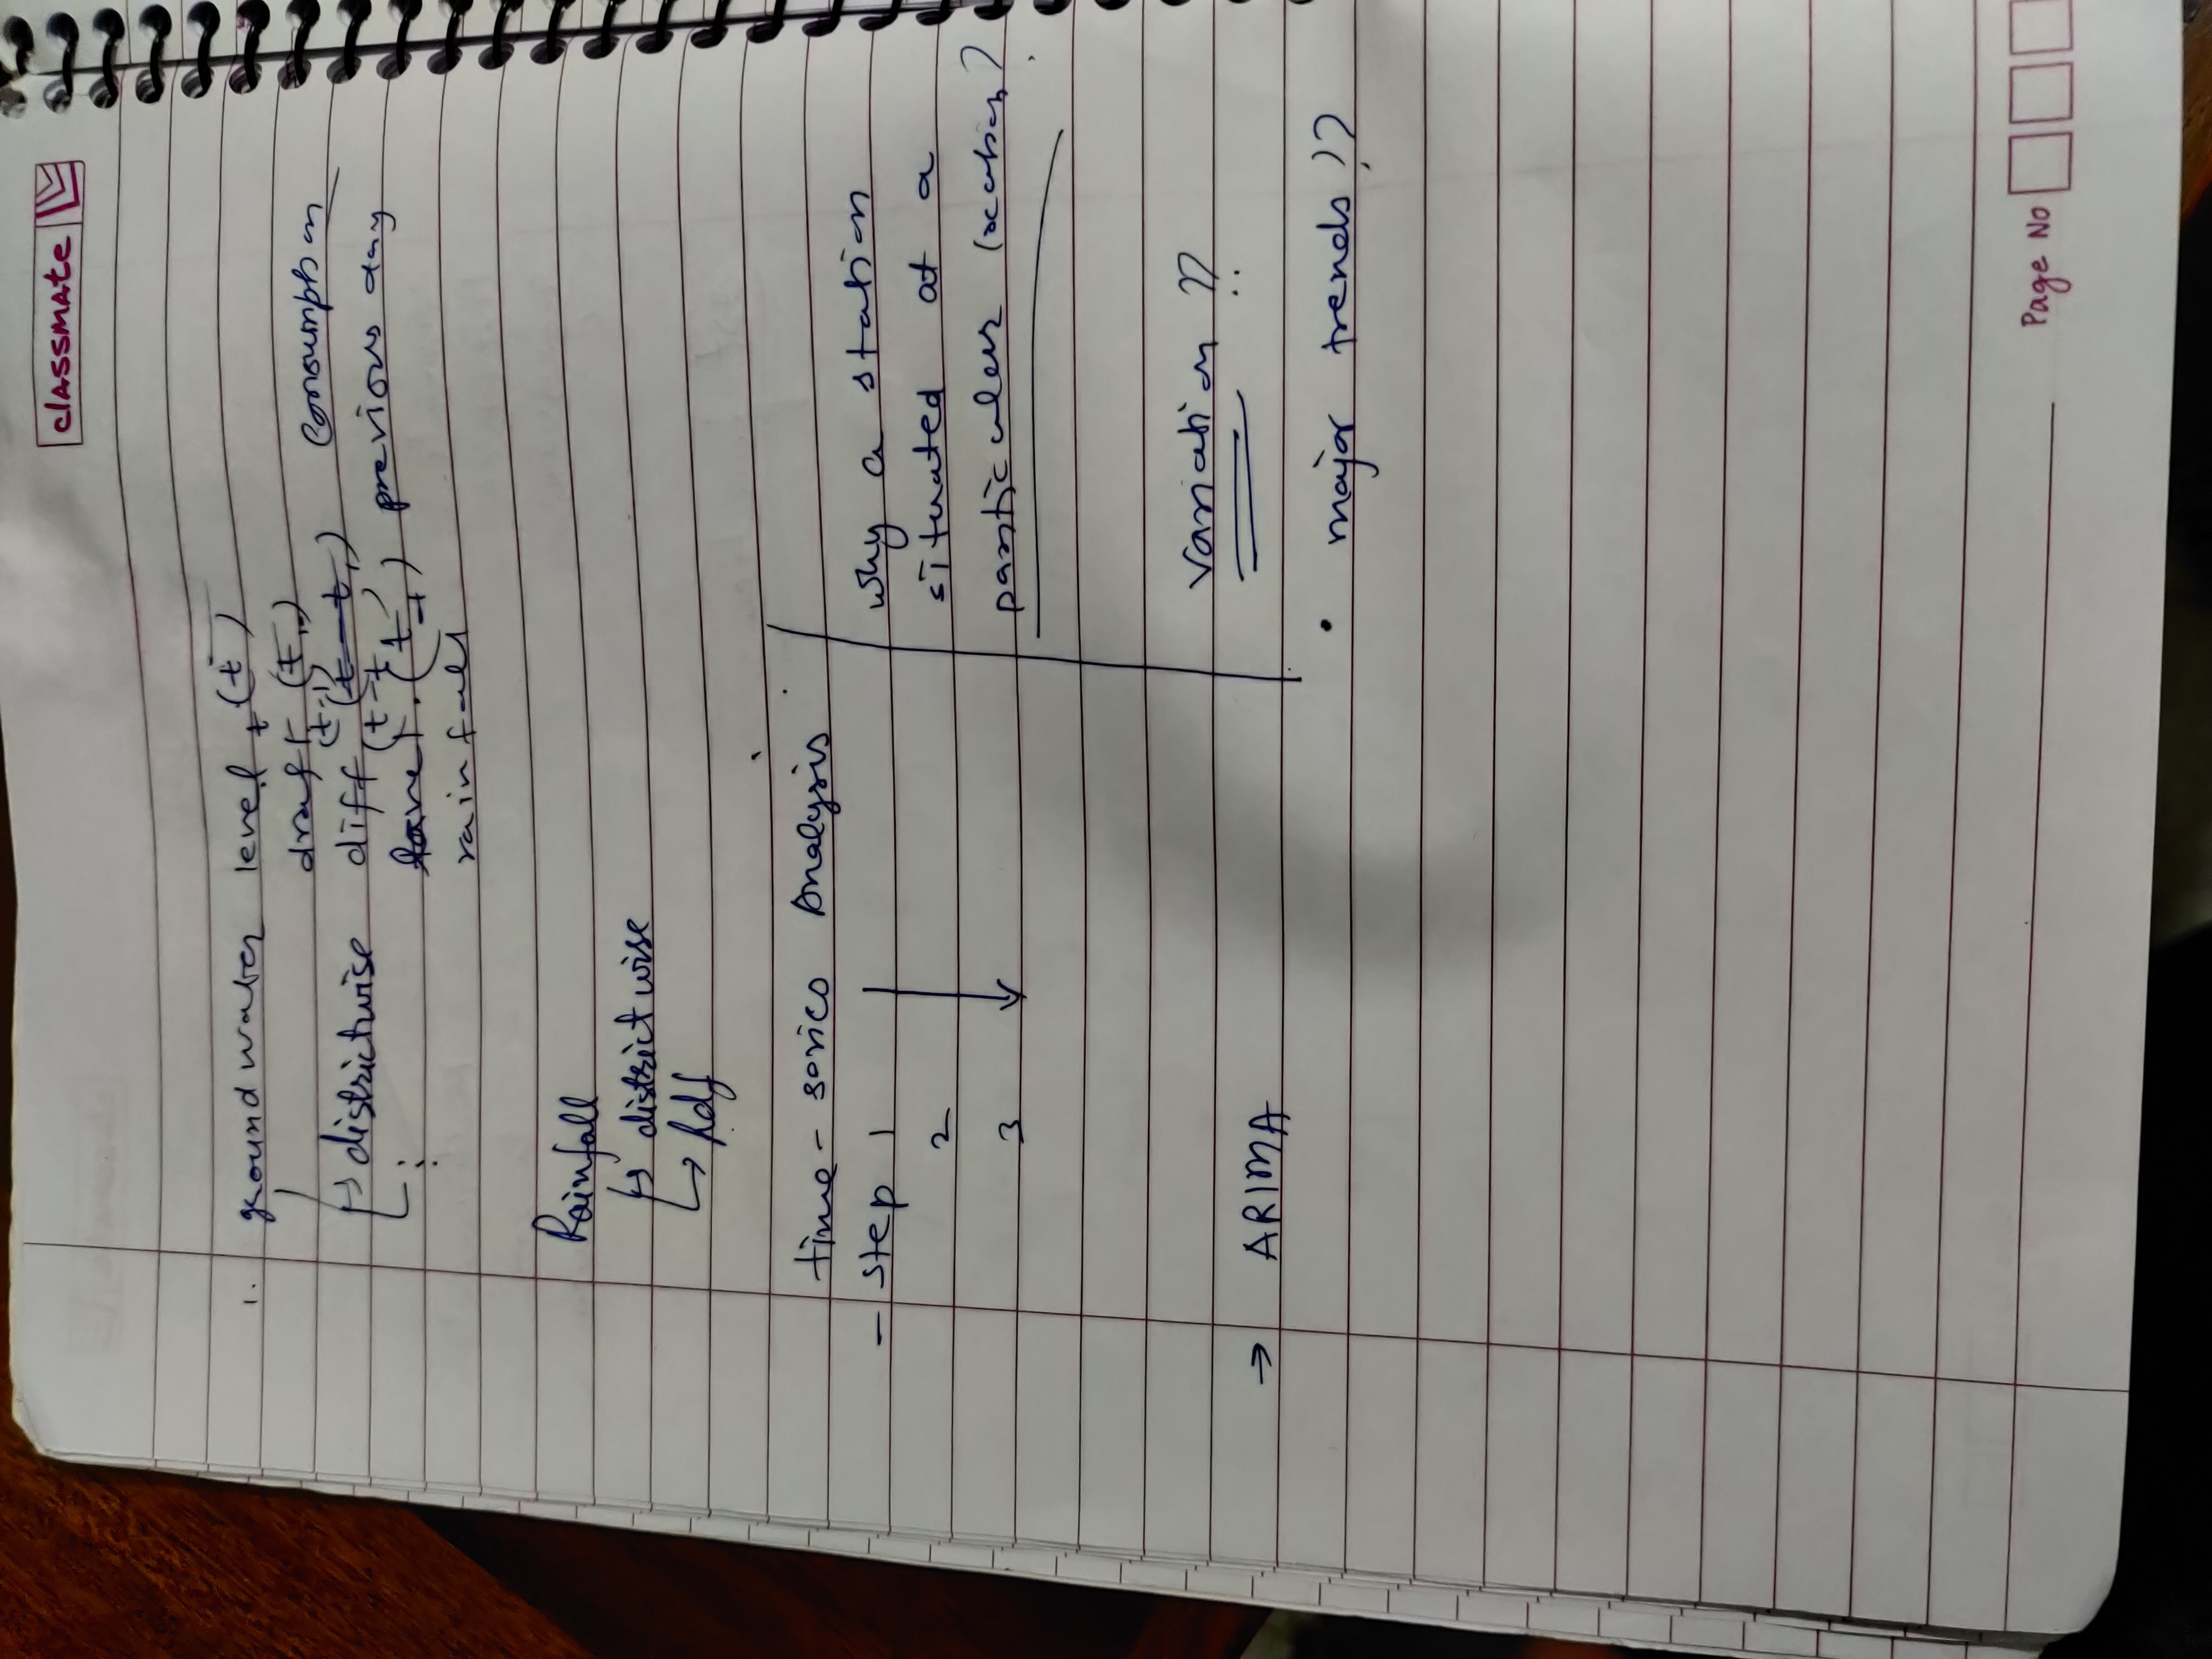 classmate
1. ground water level t (t)
draft (t
(t-1)
districtwise diff (t - t1) Consumption
(t-t
level (t-1) previous day
rainfall
Rainfall
districtwise
Adf
time - series Analysis
- step 1
2
3
why a station
situated at a
particular location?
variation ??
→ ARIMA
• major trends ??
Page No